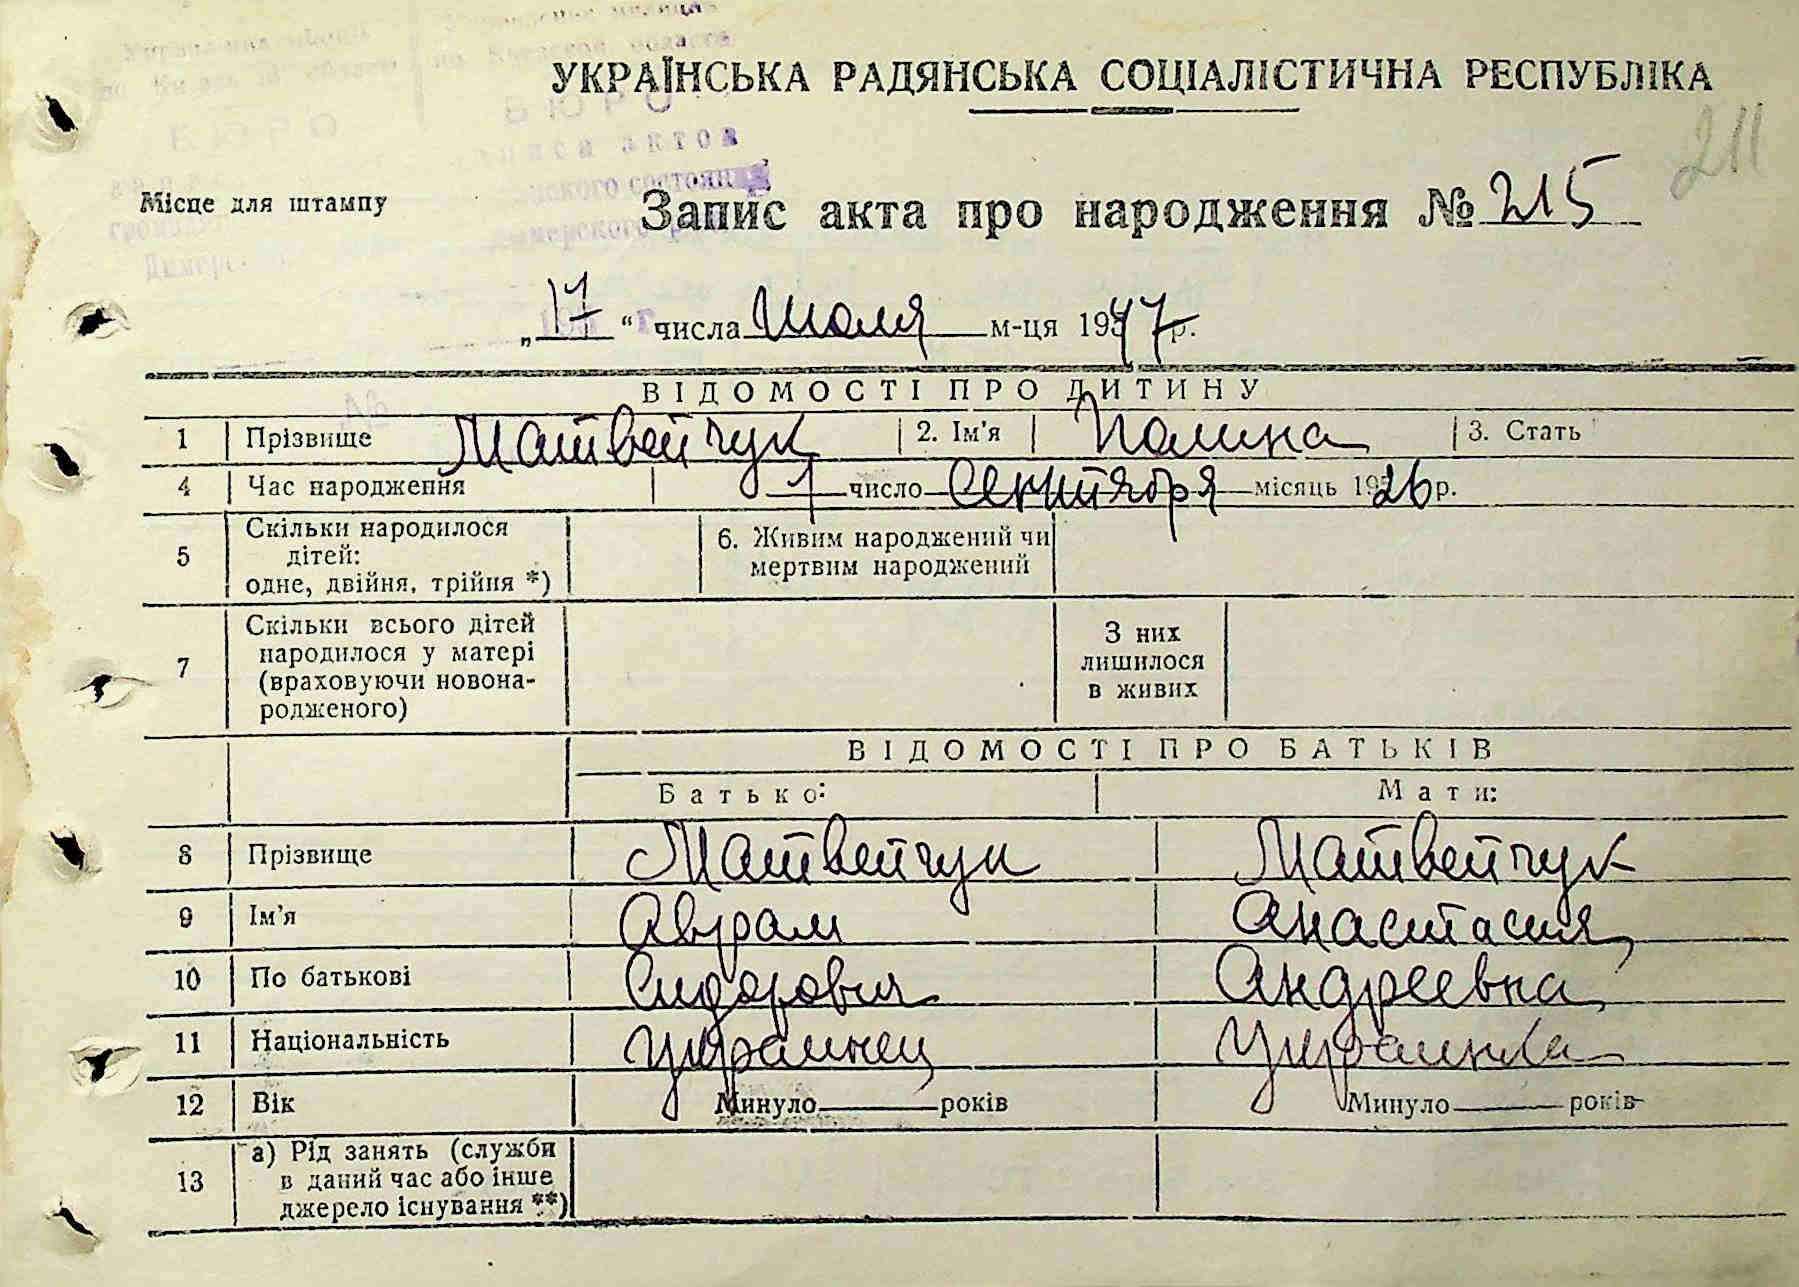 УКРАЇНСЬКА РАДЯНСЬКА СОЦІАЛІСТИЧНА РЕСПУБЛІКА
211
БЮРО
Місце для штампу
Запис акта про народження № 215
„17“ числа Июля м-ця 1947 р.
ВІДОМОСТІ ПРО ДИТИНУ
1 Прізвище Матвейчук 2. Ім'я Полина 3. Стать
4 Час народження 1 число Сентября місяць 1926 р.
5 Скільки народилося дітей: одне, двійня, трійня *) 6. Живим народжений чи мертвим народжений
7 Скільки всього дітей народилося у матері (враховуючи новонародженого) З них лишилося в живих
ВІДОМОСТІ ПРО БАТЬКІВ
Батько: Мати:
8 Прізвище Матвейчук Матвейчук
9 Ім'я Аврам Анастасия
10 По батькові Сидорович Андреевна
11 Національність Украинец Украинка
12 Вік Минуло років Минуло років
13 а) Рід занять (служби в даний час або інше джерело існування **)